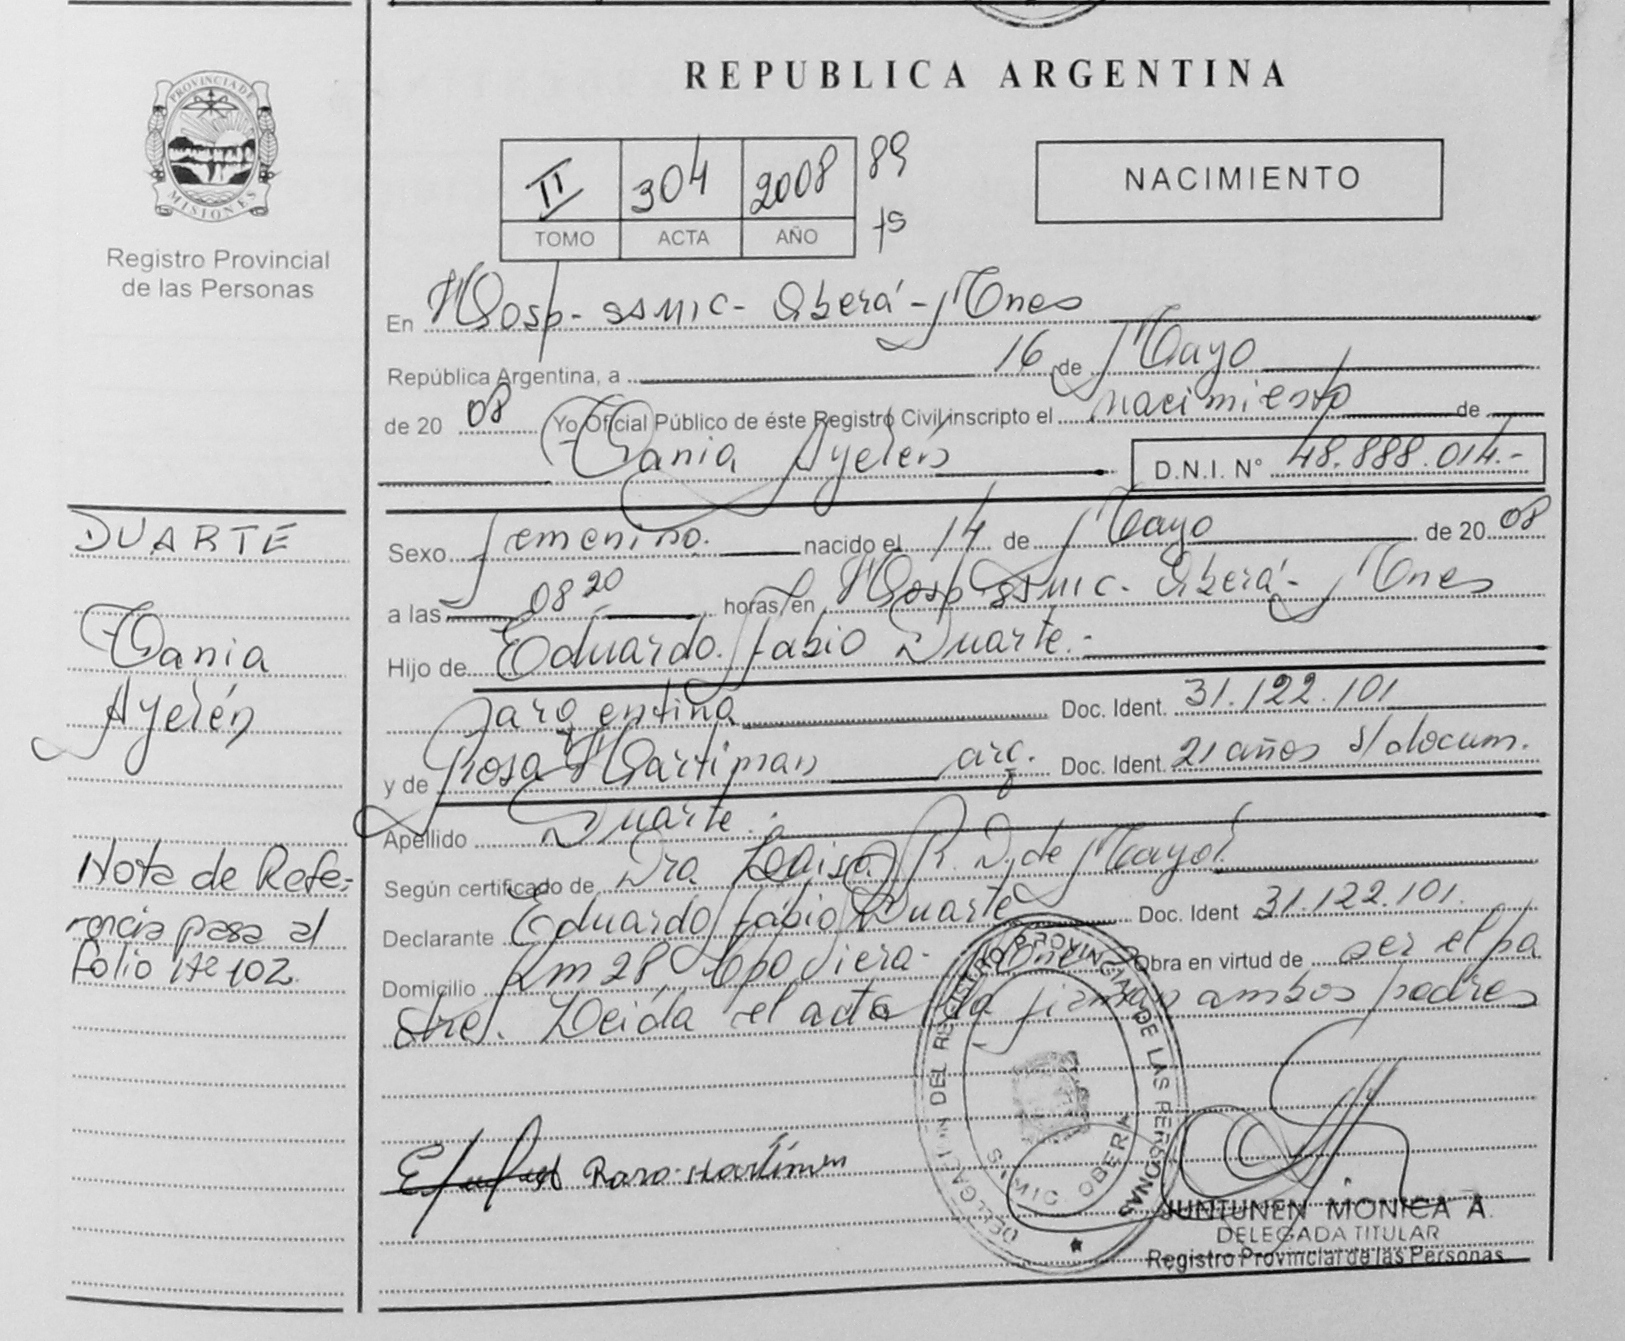 REPUBLICA ARGENTINA
PROVINCIA DE
MISIONES
Registro Provincial
de las Personas
II 304 2008 89
TOMO ACTA AÑO fs
NACIMIENTO
En Hosp- SSMIC- Oberá- Mnes
República Argentina, a 16 de Mayo
de 20 08 Yo Oficial Público de éste Registro Civil inscripto el nacimiento de
Tania Ayelén D.N.I. N° 48.888.014.-
Sexo femenino. nacido el 14 de Mayo de 20 08
a las 08 20 horas, en Hosp SSMIC- Oberá- Mnes
Hijo de Eduardo fabio Duarte.-
argentina Doc. Ident. 31.122.101
y de Rosa Martiman arg. Doc. Ident. 21 años s/docum.
Apellido Duarte.
Según certificado de Dra R. D. de Mayol
Declarante Eduardo fabio Duarte Doc. Ident 31.122.101.
Domicilio Km 28, Cpo Viera- Mnes Obra en virtud de ser el pa
dre. Leída el acta la firman ambos padres
DUARTE
Tania
Ayelén
Nota de Refe-
rencia pasa al
folio Nº 102
Rosa Martiman
DELEGACION DEL REGISTRO PROVINCIAL DE LAS PERSONAS
SSMIC. OBERA
JUNTUNEN MONICA A.
DELEGADA TITULAR
Registro Provincial de las Personas